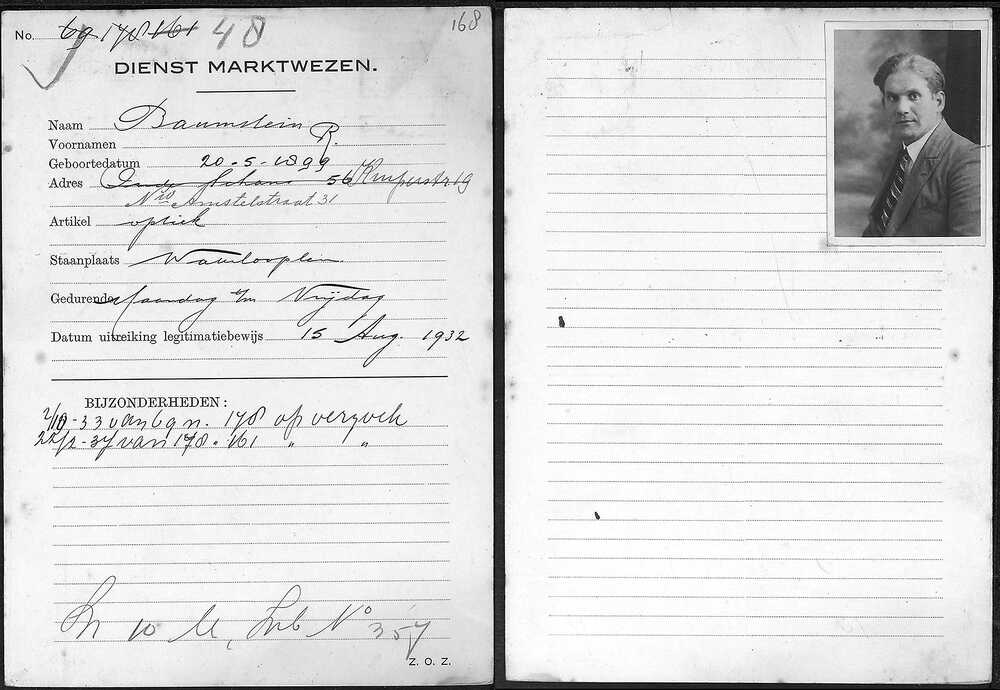 No. 69 178 161 48
168
DIENST MARKTWEZEN.
Naam Baumstein
Voornamen R.
Geboortedatum 20-5-1899
Adres Oude Schans 56 Kuiperstr 19
Nwe Amstelstraat 31
Artikel optiek
Staanplaats Waterlooplein
Gedurende Maandag t/m Vrijdag
Datum uitreiking legitimatiebewijs 15 Aug. 1932
BIJZONDERHEDEN:
2/10-33 van 69 n. 178 op verzoek
22/2-37 van 178 n. 161 " "
10 No 357
Z. O. Z.